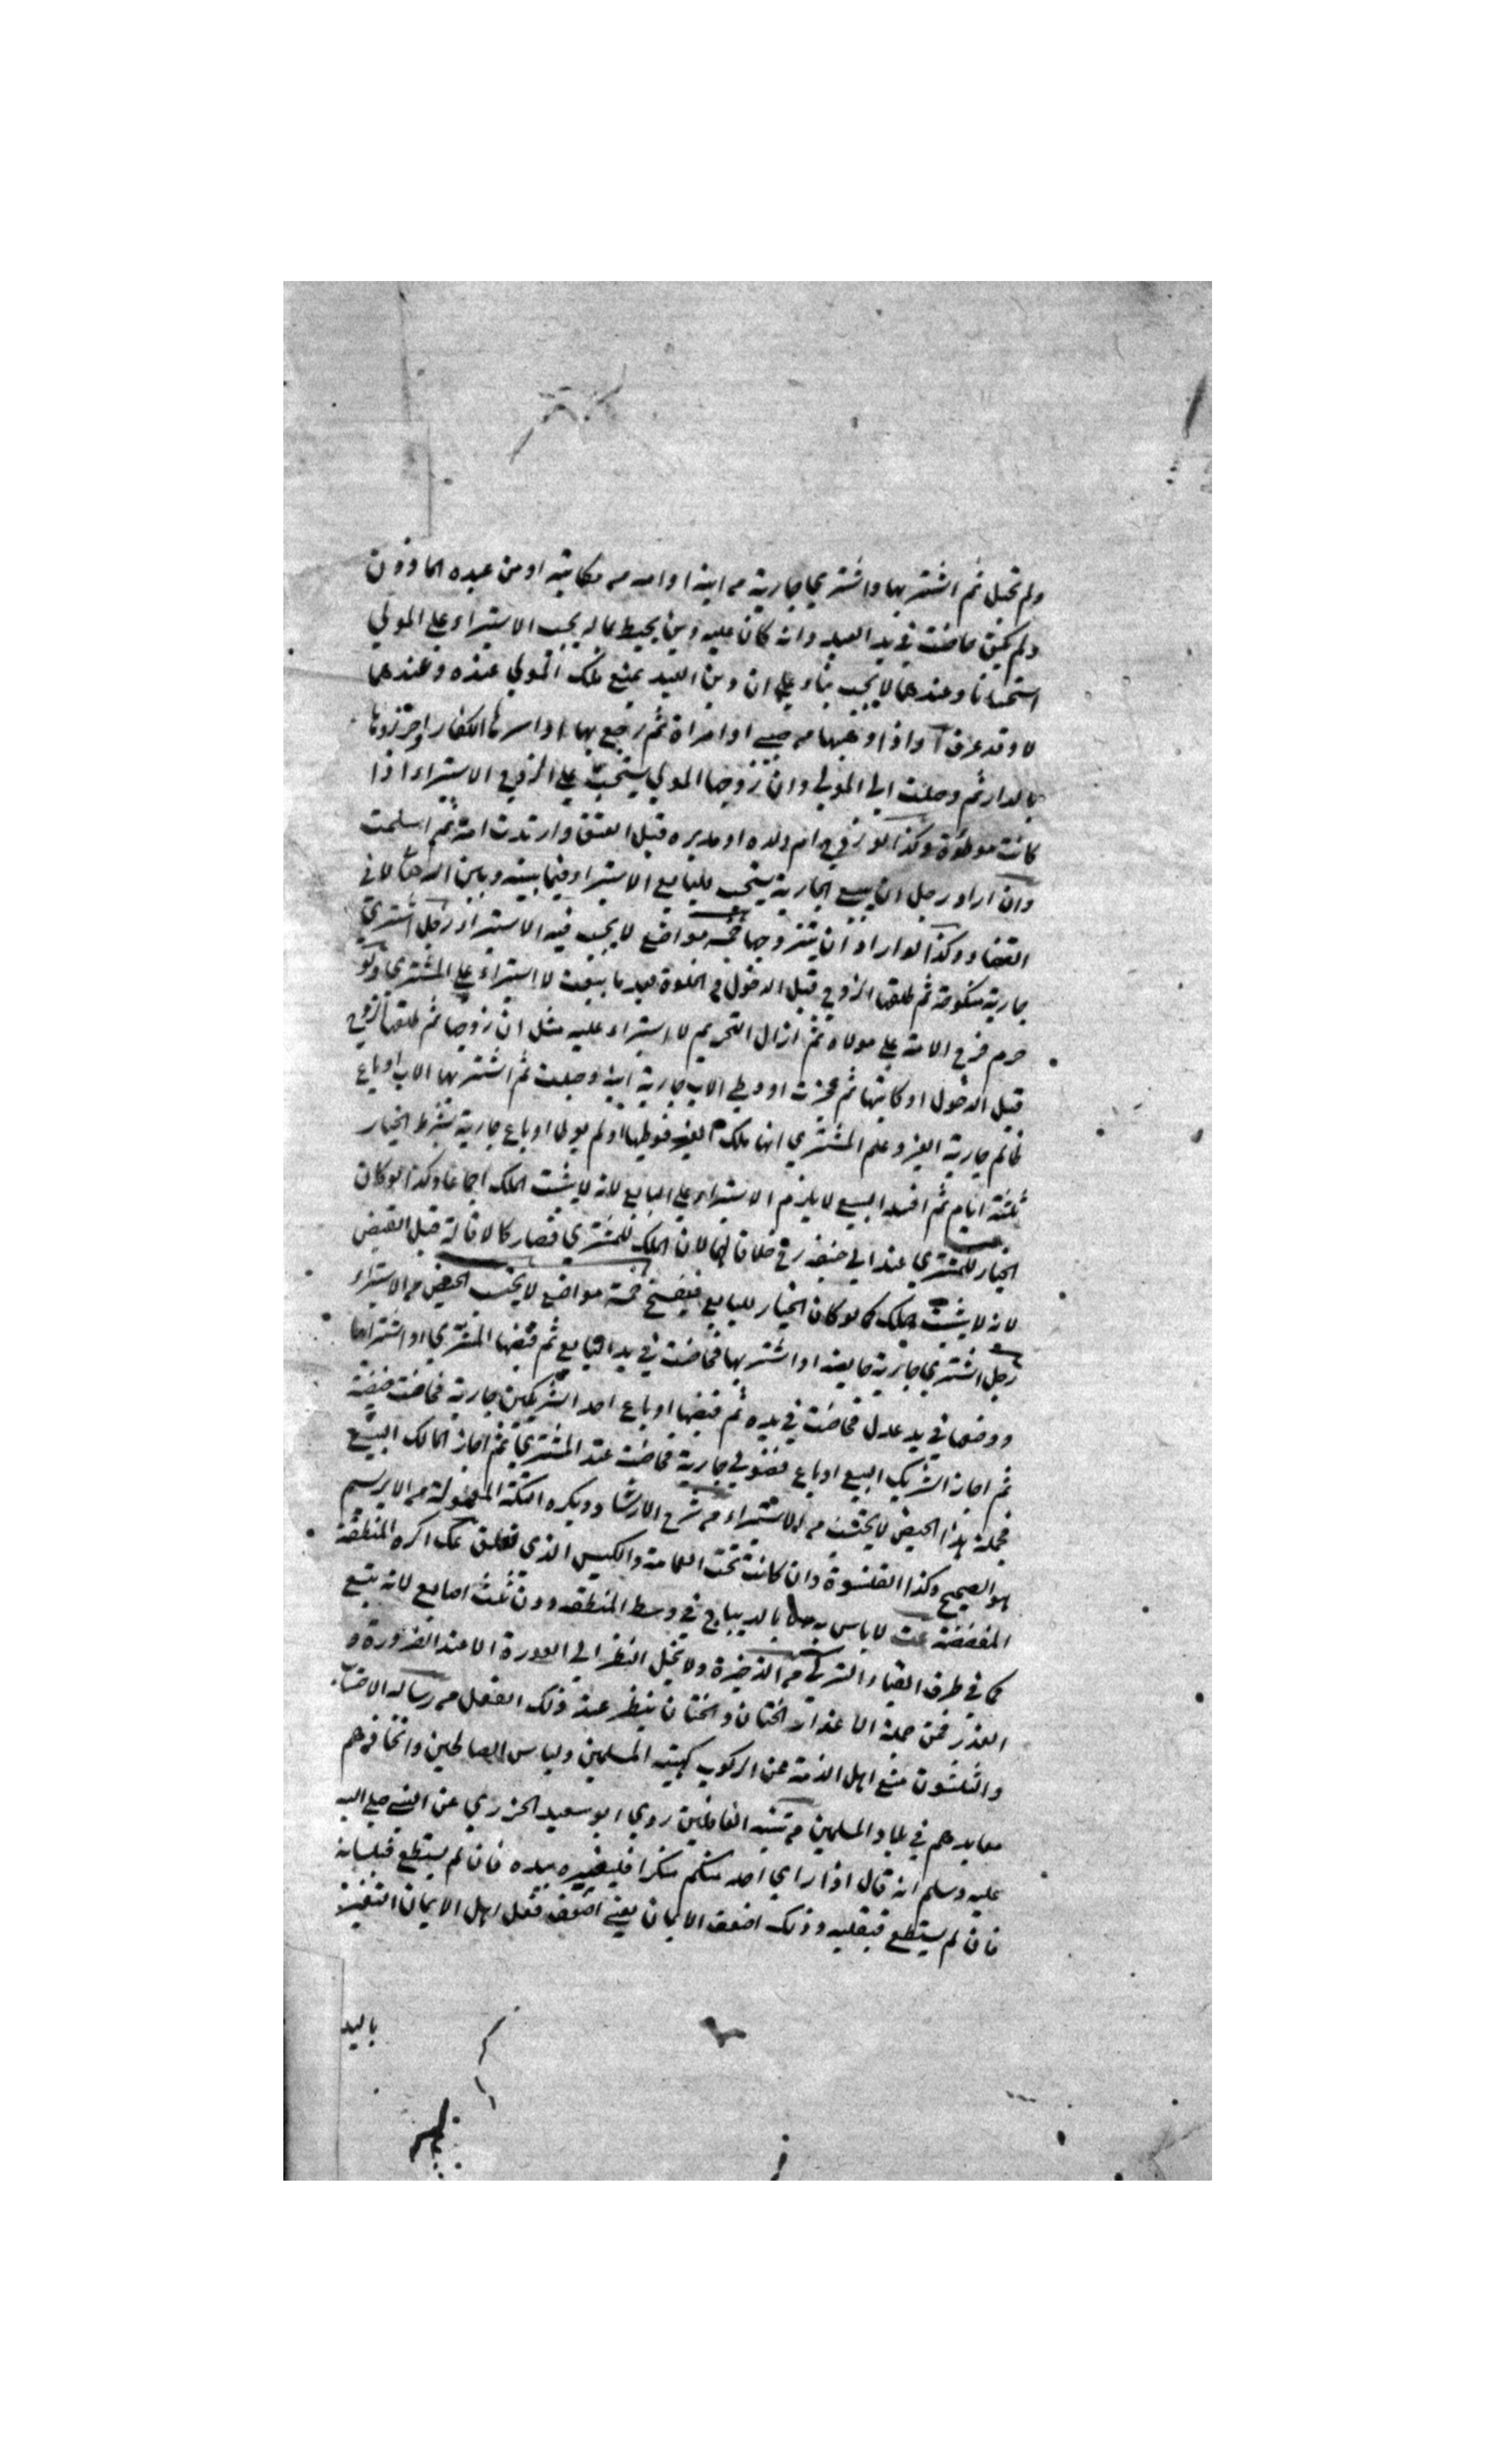 ولم تحبل ثم اشتر بها واشتري جارية من ابنه او امه من مكاتبه او من عبده الماذون
ولم يكن حاضت في يد العبد وانه كان عليه دين يحيط بماله يجب الاستبراء علي المولي
استحسانا وعندهما لا يجب بناء علي ان دين العبد يمنع ملك المولي عنده وعندهما
لا وقد عرف واذا وهبها من صبي او امراة ثم رجع بها او اسرها الكفار واحرزوها
بالدار ثم وصلت الي المولي وان زوجها المولي يستحب علي الزوج الاستبراء اذا
كانت موطوءة وكذا لو زوج ام ولده او مدبره قبل العتق وارتدت امته ثم اسلمت
وان اراد رجل ان يبيع الجارية يستحب للبايع الاستبراء فيما بينه وبين الله لا في
القضاء وكذا لو اراد ان يتزوجها خمسة مواضع لا يجب فيه الاستبراء رجل اشتري
جارية منكوحة ثم طلقها الزوج قبل الدخول و الخلوة بعد ما بيعت لا استبراء علي المشتري ولو
حرم فرج الامة علي مولاه ثم ازال التحريم لا استبراء عليه مثل ان زوجها ثم طلقها الزوج
قبل الدخول او كاتبها ثم عجزت او وطي الاب جارية ابنه وحبلت ثم اشتر بها الاب او باع
ظالم جارية الغير وعلم المشتري انها ملك الغير فوطيها او لم يولي او باع جارية بشرط الخيار
ثلثة ايام ثم افسد البيع لا يلزم الاستبراء علي البايع لانه لا يثبت الملك اجماعا وكذا لو كان
الخيار للمشتري عند ابي حنيفه رح خلافا لهما لان الملك للمشتري فصار كالاقالة قبل القبض
لانه لا يثبت الملك كما لو كان الخيار للبايع فيفسخ خمسة مواضع لا يحتسب الحيض من الاستبراء
رجل اشتري جارية حايضه او اشتر بها فحاضت في يد البايع ثم قبضها المشتري او اشتراها
ووضعها في يد عدل فحاضت في يده ثم قبضها او باع احد الشريكين جارية فحاضت حيضة
ثم اجاز الشريك البيع او باع فضولي جارية فحاضت عند المشتري ثم اجاز المالك البيع
فجملة هذا الحيض لا يحتسب من الاستبراء من شرح الارشاد ويكره التكة المعمولة من الابريسم
هو الصحيح وكذا القلنسوة وان كانت تحت العمامة والكيس الذي تعلق عك اكره المنطقة
المفضضة عت لا باس به بالديباج في وسط المنطقه دون ثلث اصابع لانه تبع
كما في طرف القباء التركي من الذخيرة ولا يحل النظر الي العورة الا عند الضرورة و
العذر فمن جملة الاعذار الختان والختان ينظر عند ذلك الفعل من رسالة الاحتساب
والثلثون منع اهل الذمة عن الركوب كهيئة المسلمين ولباس الصالحين واتخاذهم
معابدهم في بلاد المسلمين من تنبه الغافلين روي ابو سعيد الخزري عن النبي صلي الله
عليه وسلم انه قال اذا راي احد منكم منكرا فليغيره بيده فان لم يستطع فبلسانه
فان لم يستطع فبقلبه وذلك اضعف الايمان يعني اضعف فعل اهل الايمان التغيير
باليد